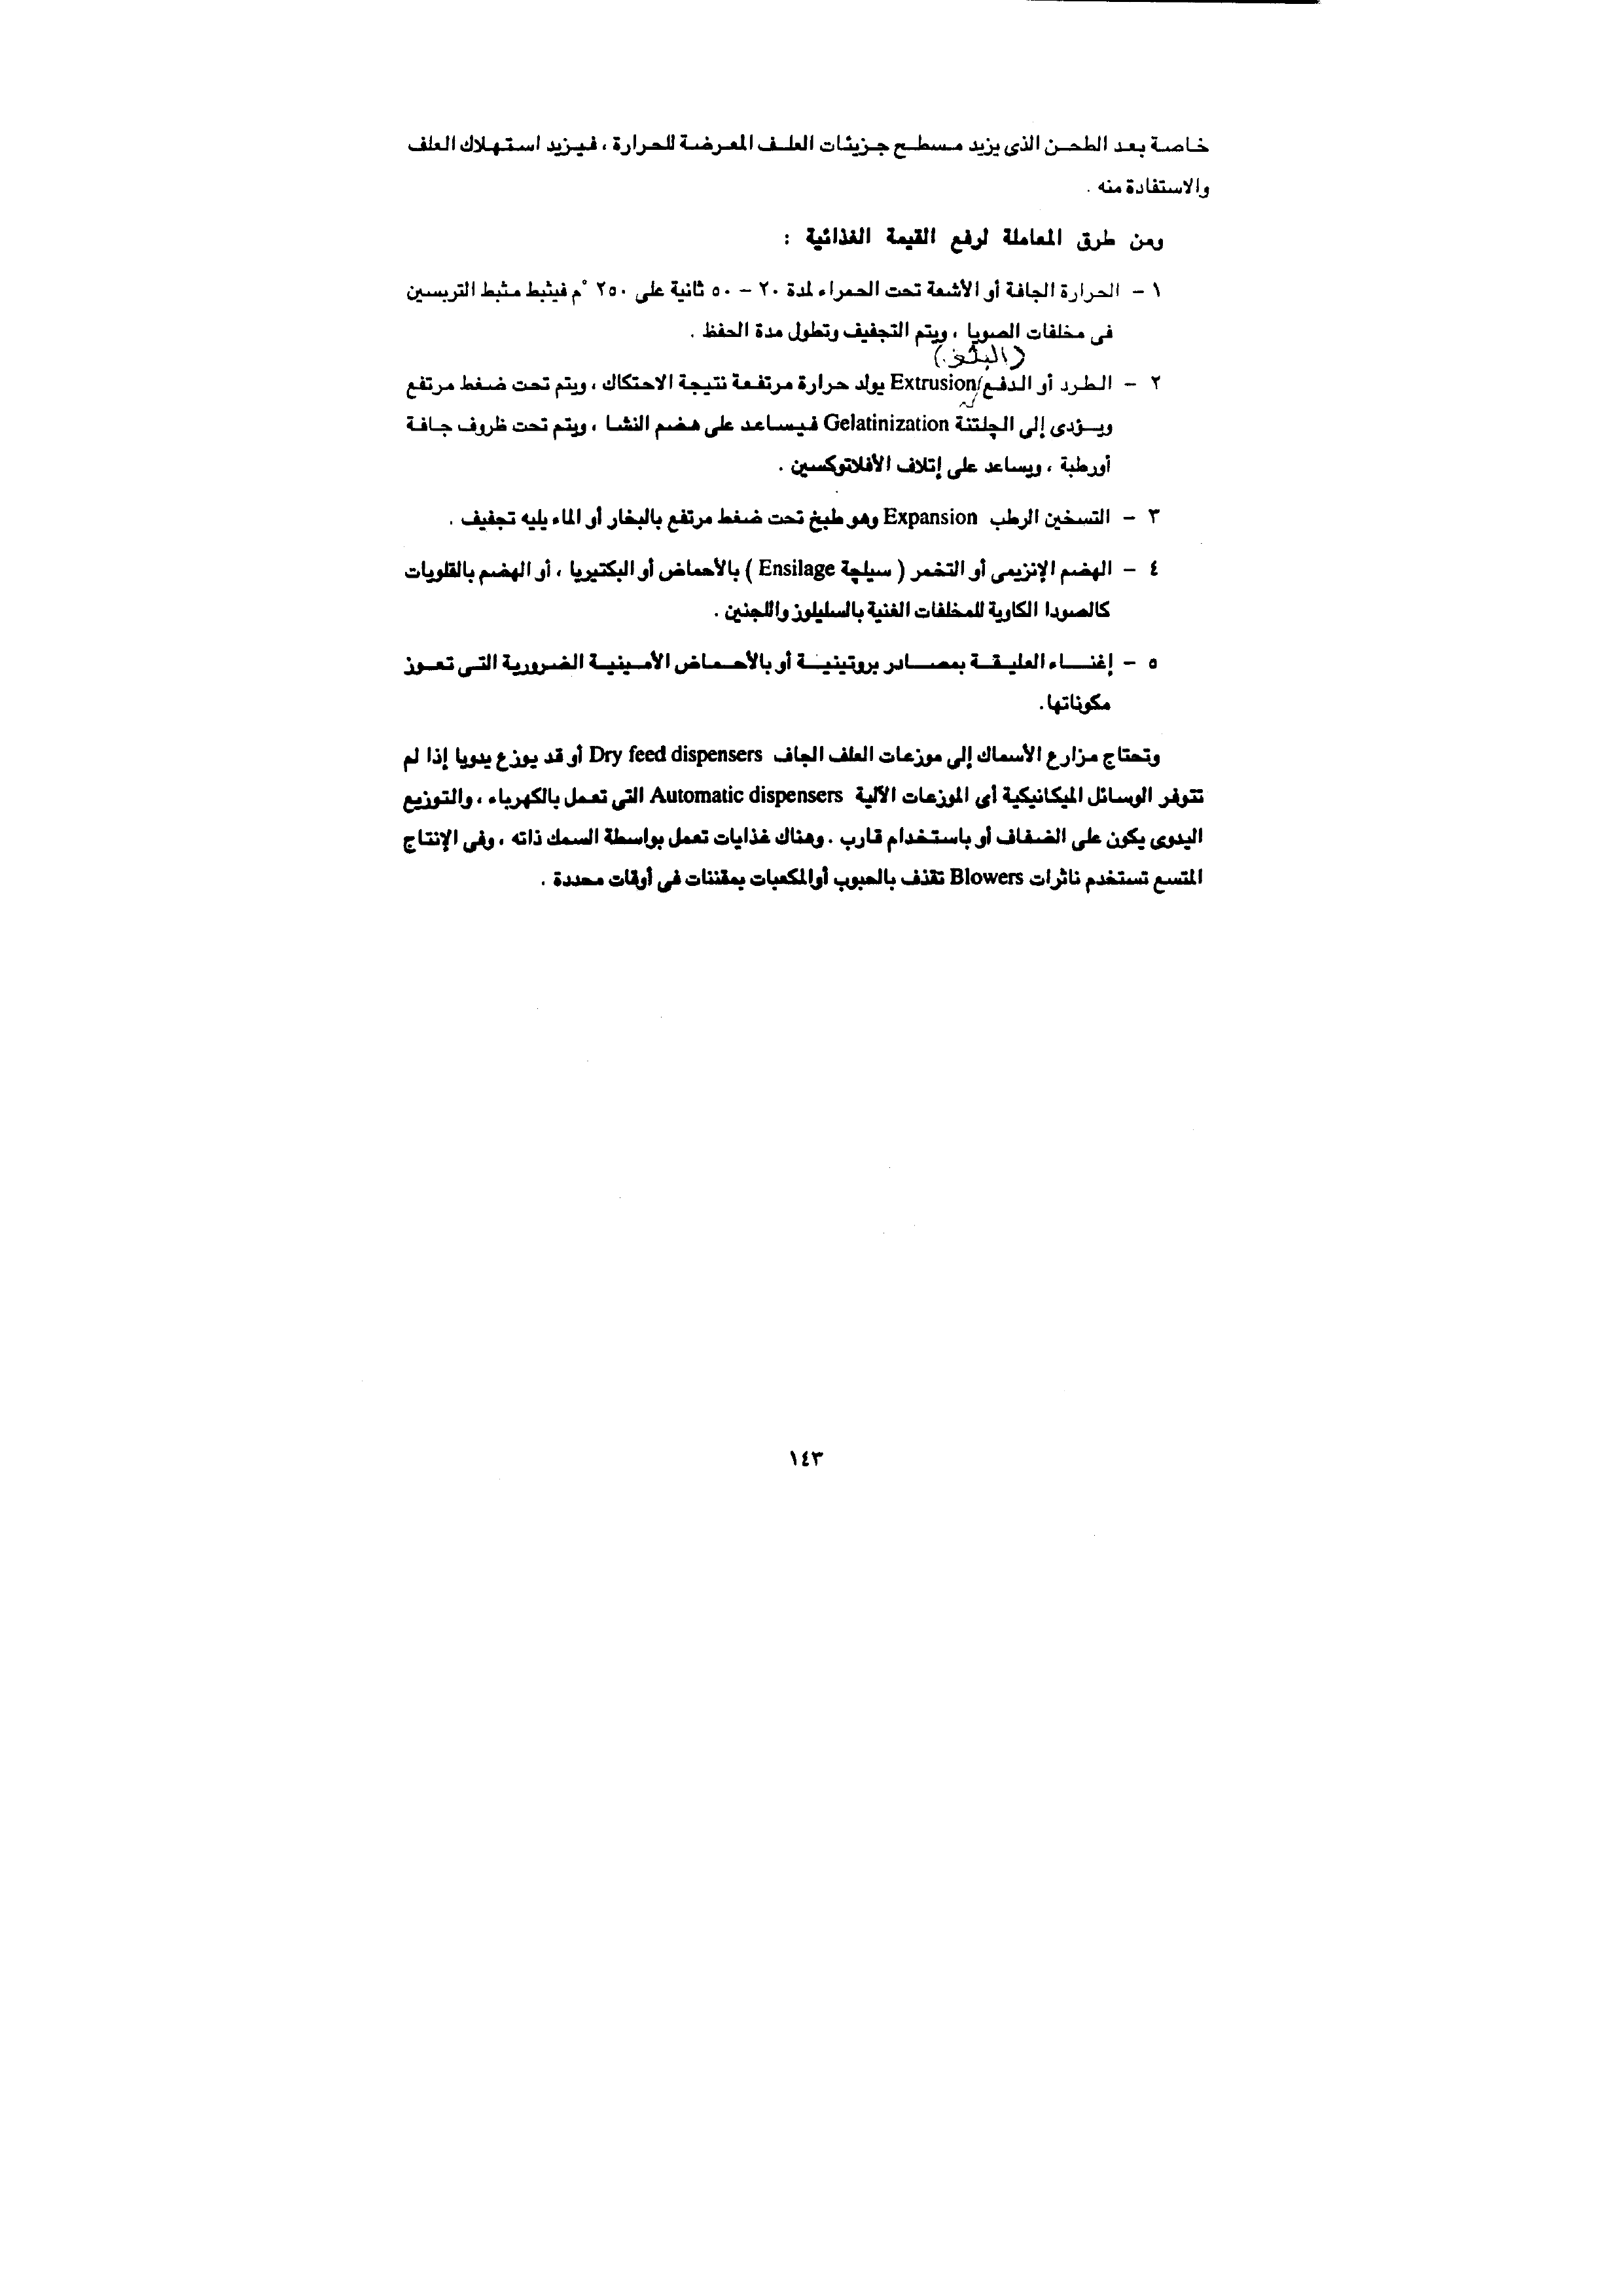 خاصة بعد الطحن الذى يزيد مسطح جزيئات العلف المعرضة للحرارة ، فيزيد استهلاك العلف
والاستفادة منه .
ومن طرق المعاملة لرفع القيمة الغذائية :
١ – الحرارة الجافة أو الأشعة تحت الحمراء لمدة ٢٠ – ٥٠ ثانية على ٢٥٠ °م فيثبط مثبط التربسين
فى مخلفات الصويا ، ويتم التجفيف وتطول مدة الحفظ .
٢ – الطرد أو الدفع/Extrusion يولد حرارة مرتفعة نتيجة الاحتكاك ، ويتم تحت ضغط مرتفع
ويؤدى إلى الجلتنة Gelatinization فيساعد على هضم النشا ، ويتم تحت ظروف جافة
أورطبة ، ويساعد على إتلاف الأفلاتوكسين .
٣ – التسخين الرطب Expansion وهو طبخ تحت ضغط مرتفع بالبخار أو الماء يليه تجفيف .
٤ – الهضم الإنزيمى أو التخمر ( سيلجة Ensilage ) بالأحماض أو البكتيريا ، أو الهضم بالقلويات
كالصودا الكاوية للمخلفات الغنية بالسليلوز واللجنين .
٥ – إغناء العليقة بمصادر بروتينية أو بالأحماض الأمينية الضرورية التى تعوز
مكوناتها.
وتحتاج مزارع الأسماك إلى موزعات العلف الجاف Dry feed dispensers أو قد يوزع يدويا إذا لم
تتوفر الوسائل الميكانيكية أى الموزعات الآلية Automatic dispensers التى تعمل بالكهرباء ، والتوزيع
اليدوى يكون على الضفاف أو باستخدام قارب . وهناك غذايات تعمل بواسطة السمك ذاته ، وفى الإنتاج
المتسع تستخدم ناثرات Blowers تقذف بالحبوب أوالمكعبات بمقننات فى أوقات محددة .
١٤٣